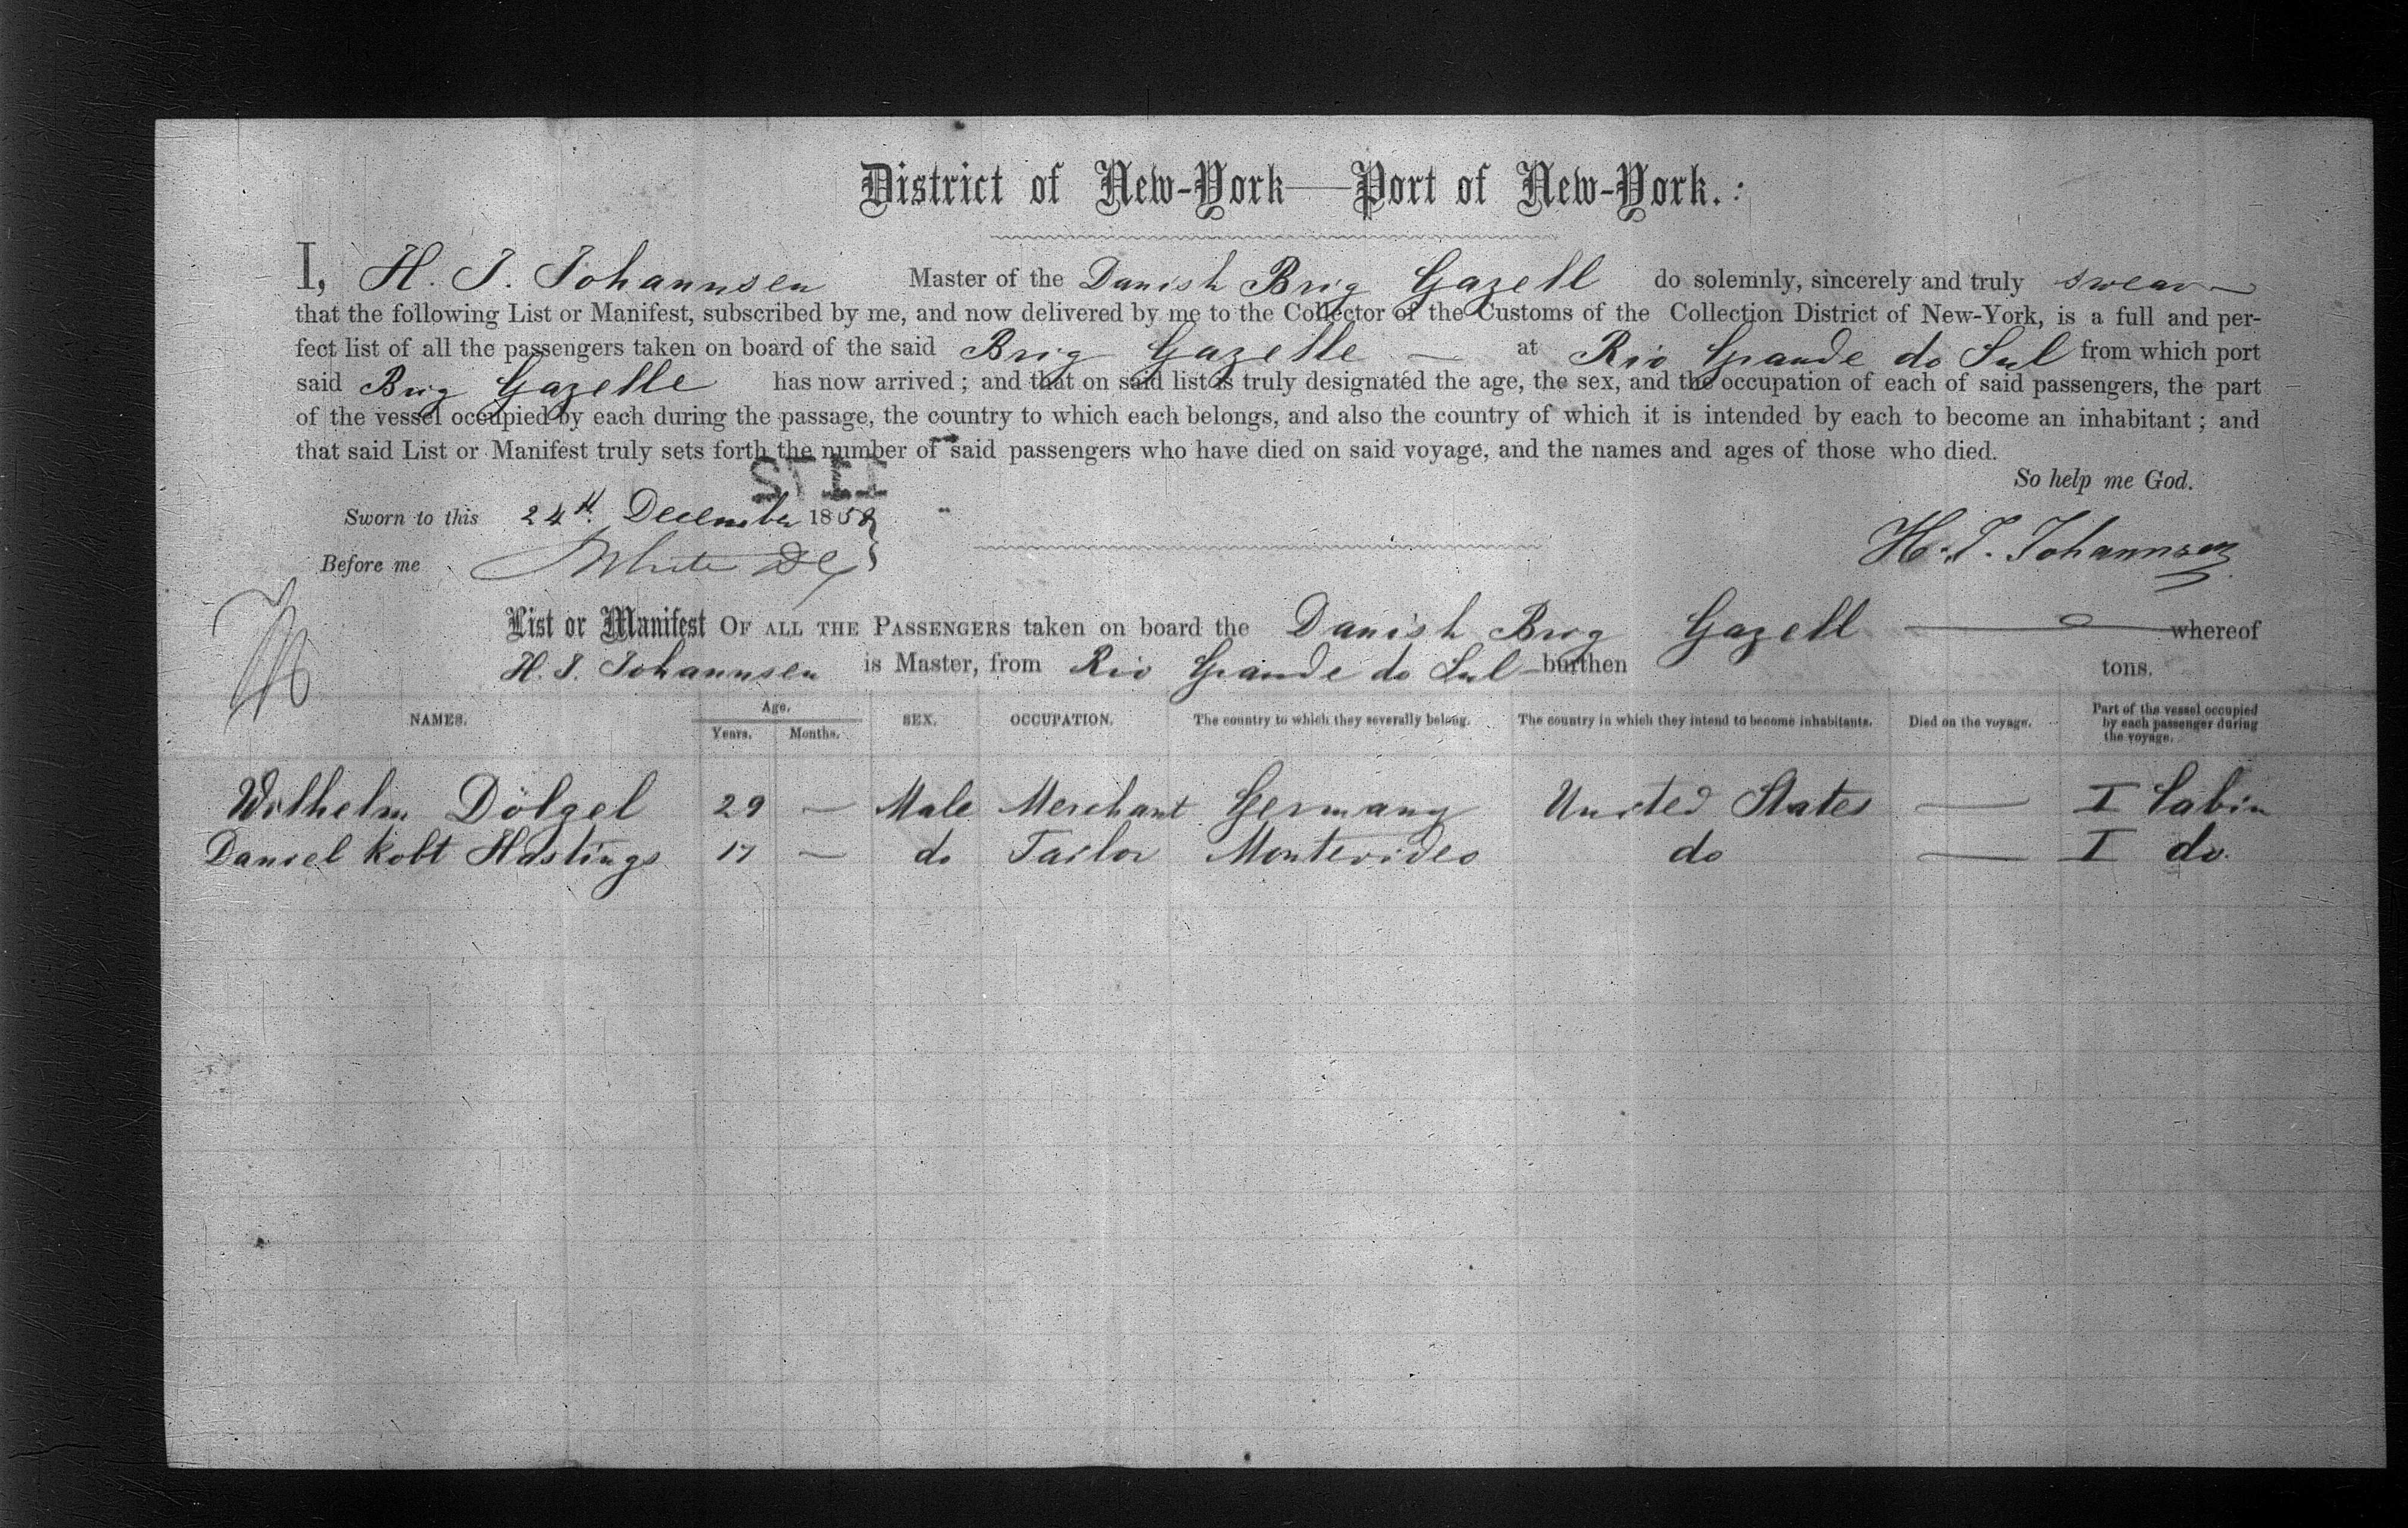 District of New-York—Port of New-York.:
I, H. J. Johannsen Master of the Danish Brig Gazell do solemnly, sincerely and truly swear
that the following List or Manifest, subscribed by me, and now delivered by me to the Collector of the Customs of the Collection District of New-York, is a full and per-
fect list of all the passengers taken on board of the said Brig Gazelle — at Rio Grande do Sul from which port
said Brig Gazelle has now arrived; and that on said list is truly designated the age, the sex, and the occupation of each of said passengers, the part
of the vessel occupied by each during the passage, the country to which each belongs, and also the country of which it is intended by each to become an inhabitant; and
that said List or Manifest truly sets forth the number of said passengers who have died on said voyage, and the names and ages of those who died.
So help me God.
Sworn to this 24th December 1858
H. J. Johannsen
Before me White
List or Manifest OF ALL THE PASSENGERS taken on board the Danish Brig Gazell whereof
H. J. Johannsen is Master, from Rio Grande do Sul burthen tons.
NAMES. Age. Years. Months. SEX. OCCUPATION. The country to which they severally belong. The country in which they intend to become inhabitants. Died on the voyage. Part of the vessel occupied by each passenger during the voyage.
Wilhelm Dölgel 29 — Male Merchant Germany United States — I Cabin
Daniel Robt Hastings 17 — do Tailor Montevideo do — I do.